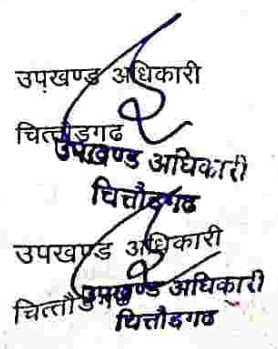 उपखण्ड अधिकारी
चित्तौडगढ
उपखण्ड अधिकारी
चित्तौडगढ
उपखण्ड अधिकारी
चित्तौडगढ
उपखण्ड अधिकारी
चित्तौडगढ